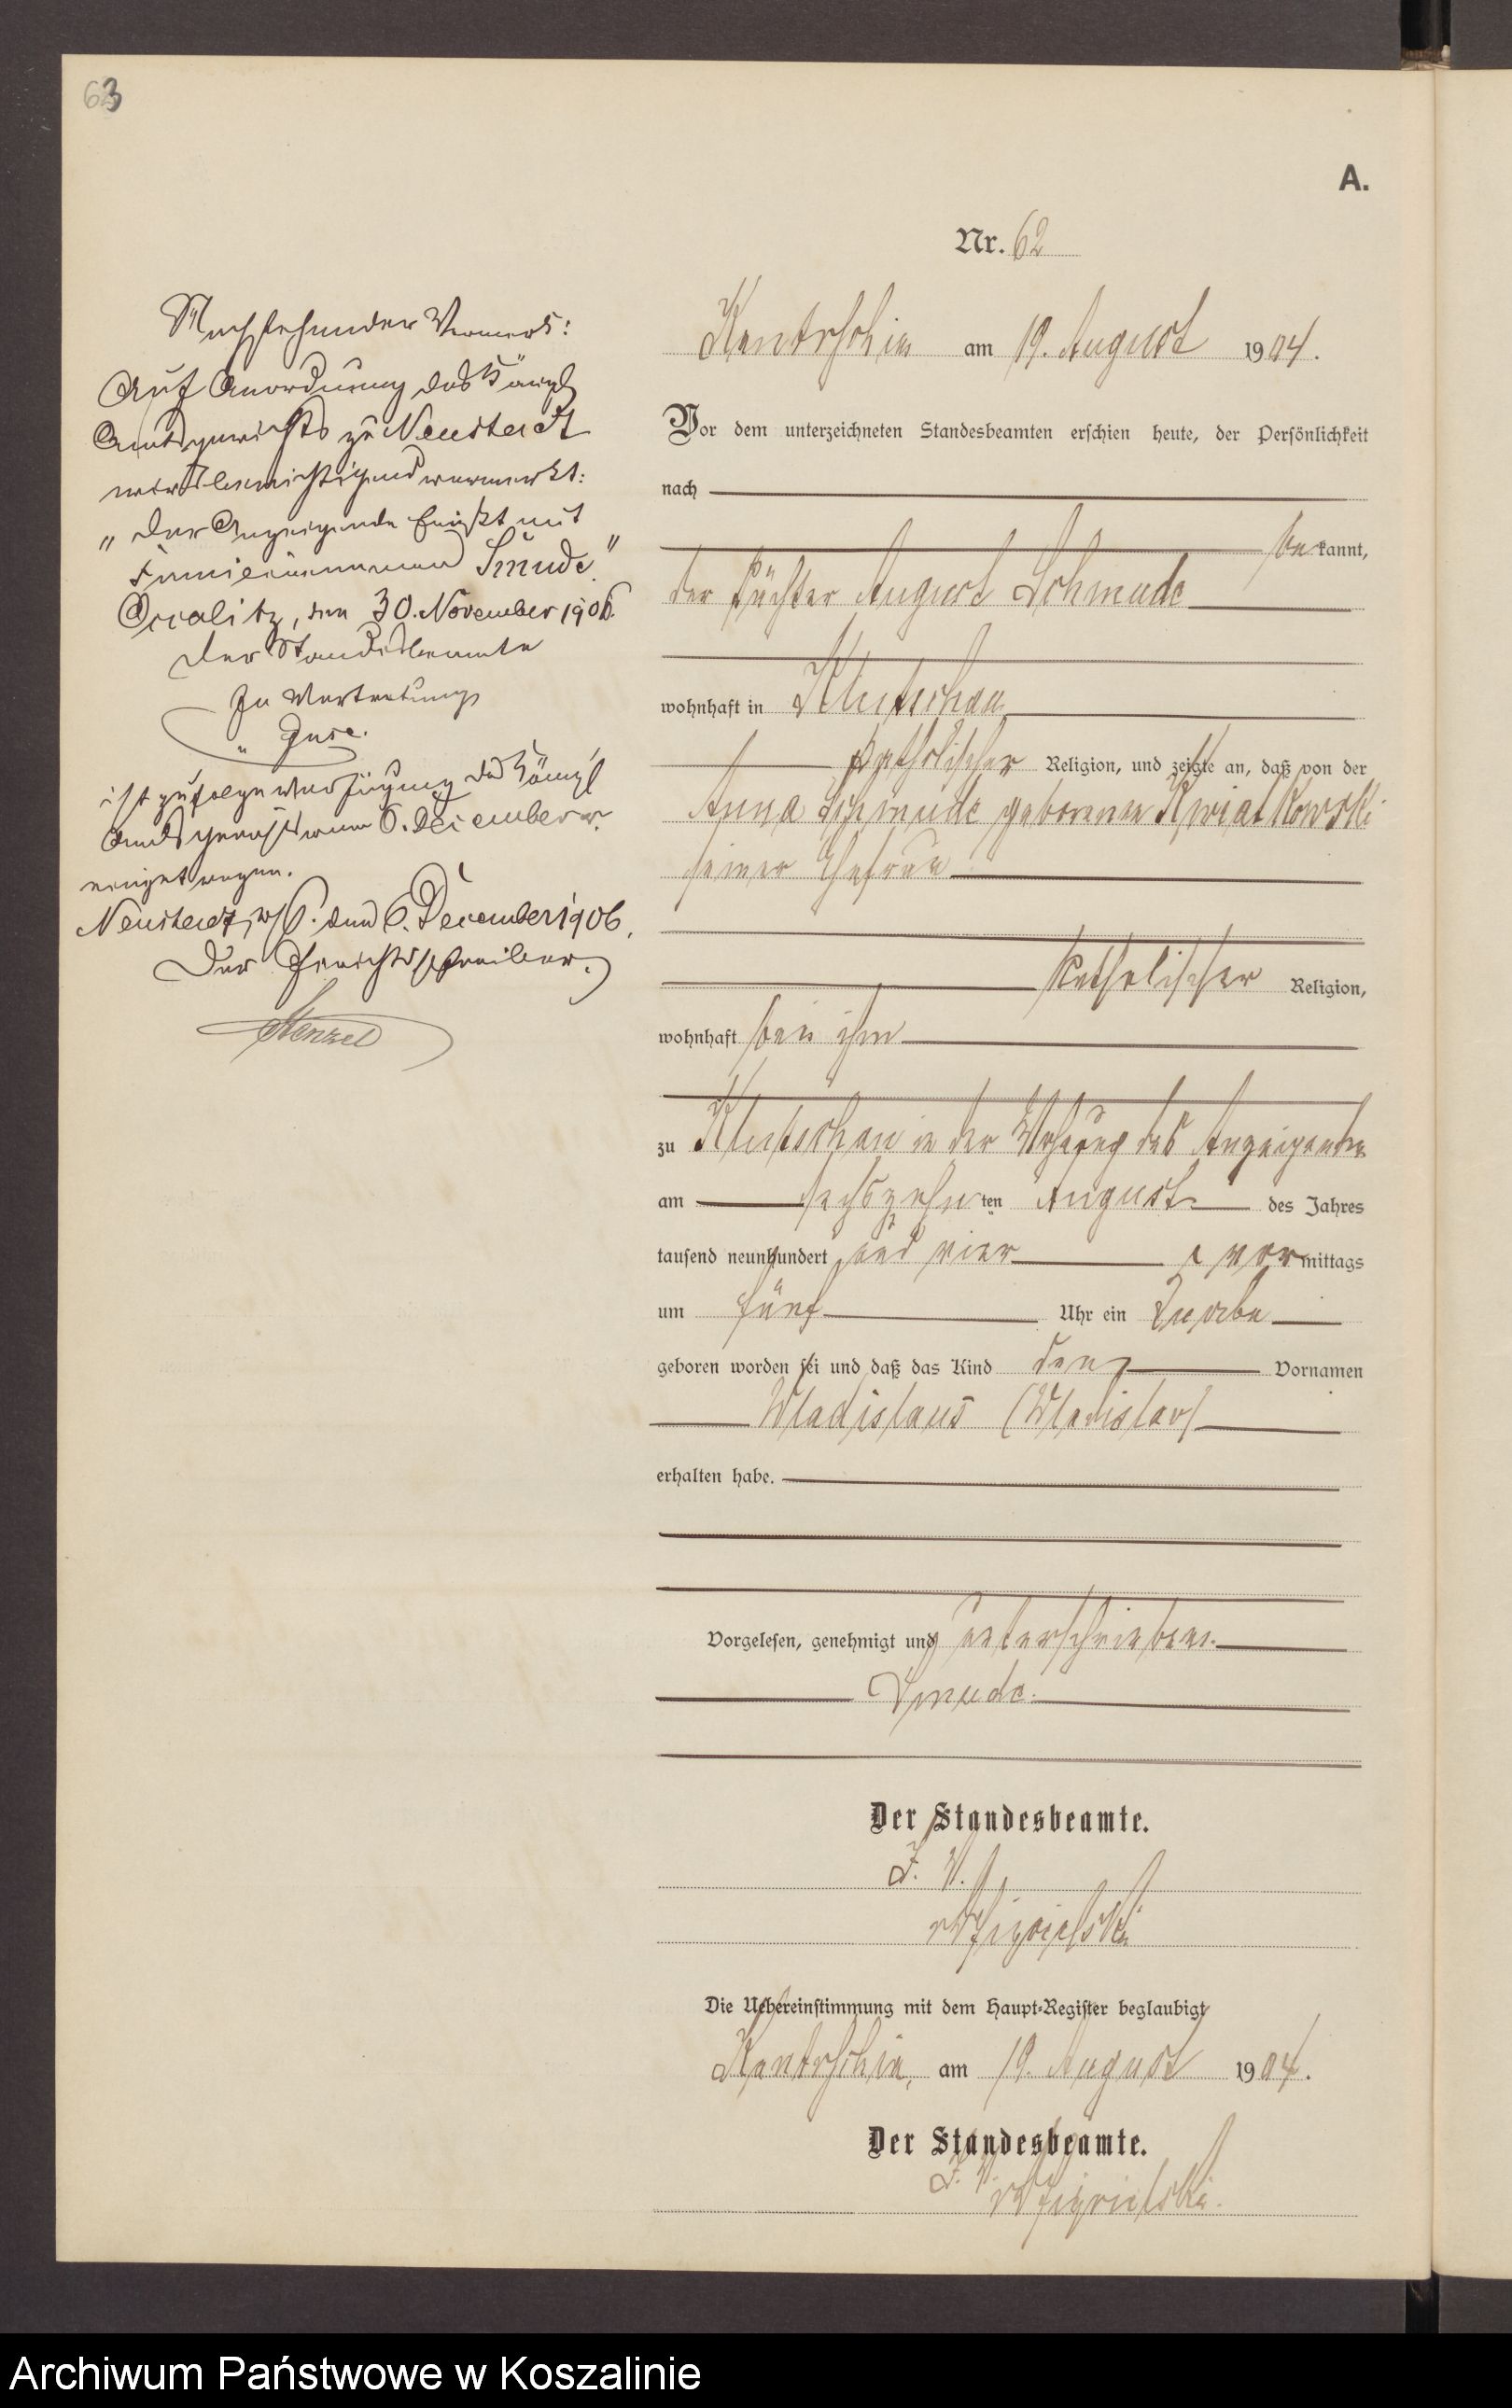 63
A.
Nr. 62
Nachstehender Vermerk:
Auf Anordnung des Königl
Amtsgerichts zu Neustadt
wird berichtigend vermerkt:
„Der Anzeigende heißt mit
Familiennamen Smude."
den 30. November 1906.
Der Standesbeamte
In Vertretung
ist zufolge Verfügung des Königl
Amtsgerichts vom 6. December
eingetragen.
Neustadt, W/Pr. den 6. December 1906.
Der Gerichtsschreiber.
Stenzel
Kantrschin am 19. August 1904.
Vor dem unterzeichneten Standesbeamten erschien heute, der Persönlichkeit
nach
bekannt,
der Pächter August Schmude
wohnhaft in Klutschau
katholischer Religion, und zeigte an, daß von der
Anna Schmude geborenen Kwiatkowski
seiner Ehefrau
katholischer Religion,
wohnhaft bei ihm
zu Klutschau in der Behausung des Anzeigenden
am sechszehnten August des Jahres
tausend neunhundert und vier vormittags
um fünf Uhr ein Knabe
geboren worden sei und daß das Kind den Vornamen
Wladislaus (Wladislav)
erhalten habe.
Vorgelesen, genehmigt und unterschrieben.
Smude.
Der Standesbeamte.
I. V.
Die Uebereinstimmung mit dem Haupt-Register beglaubigt
Kantrschin, am 19. August 1904.
Der Standesbeamte.
I. V.
Archiwum Państwowe w Koszalinie